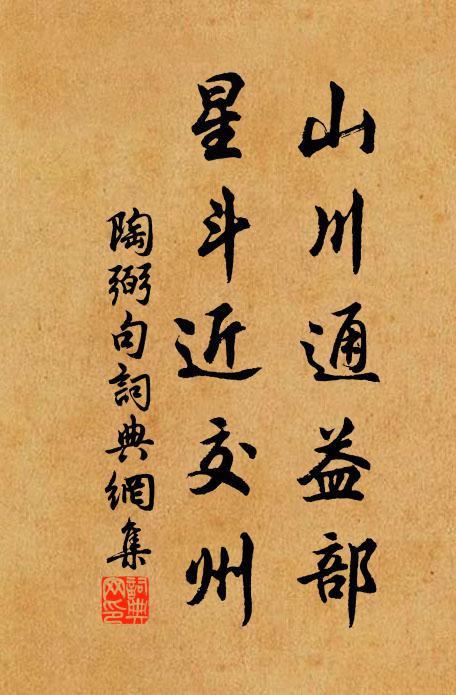 山川通益部
星斗近交州
陶弼句詞典網集
詞典网印